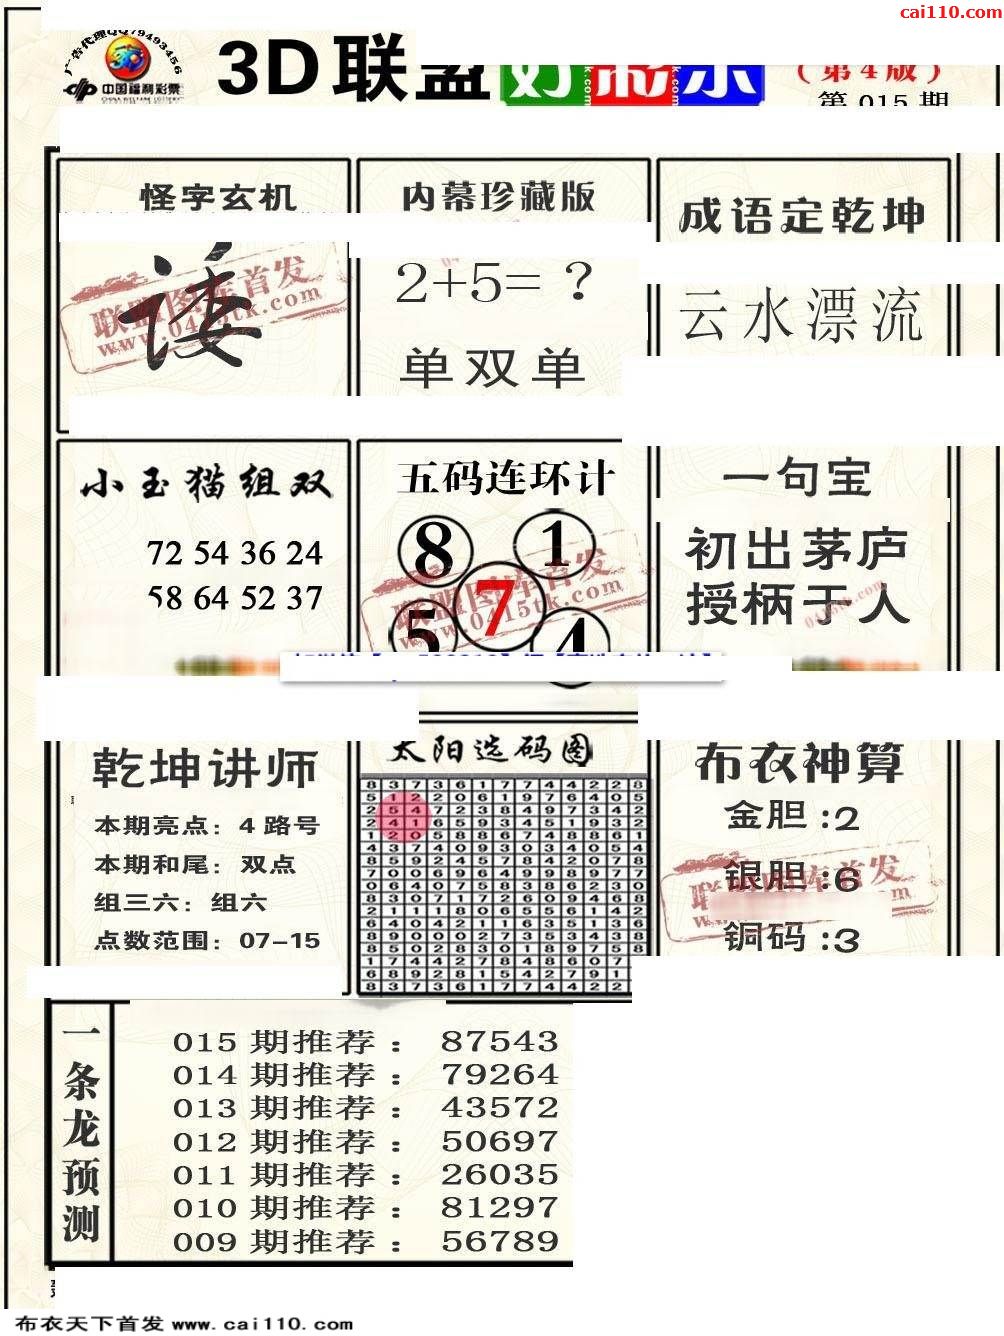 cai110.com
广告代理QQ79493456
中国福利彩票
3D联盟
(第4版)
第 015 期
怪字玄机
内幕珍藏版
成语定乾坤
2+5=？
单双单
云水漂流
联盟图库首发
www.0415tk.com
小玉猫组双
72 54 36 24
58 64 52 37
五码连环计
8 1
7
5 4
联盟图库首发
www.0415tk.com
一句宝
初出茅庐
授柄于人
乾坤讲师
本期亮点：4 路号
本期和尾：双点
组三六：组六
点数范围：07-15
太阳选码图
8 3 7 3 6 1 7 7 4 4 2 2 8
5 1 2 2 0 6 1 9 7 6 4 0 5
2 5 4 7 2 3 8 4 9 7 3 4 2
2 4 1 6 5 9 3 4 5 1 9 3 2
1 2 0 5 8 8 6 7 4 8 8 6 1
4 5 7 4 0 9 3 0 3 4 0 5 4
8 5 9 2 4 5 7 8 4 2 0 7 8
7 0 0 6 9 6 4 9 9 8 9 7 7
0 6 4 0 7 5 8 3 8 6 2 3 0
8 3 0 7 1 7 2 6 0 9 4 6 8
2 1 1 1 8 0 6 5 5 6 1 4 2
6 0 4 0 4 2 2 1 1 6 3 5 1 3 6
布衣神算
金胆:2
银胆:6
铜码:3
联盟图库首发
一条龙预测
015 期推荐： 87543
014 期推荐： 79264
013 期推荐： 43572
012 期推荐： 50697
011 期推荐： 26035
010 期推荐： 81297
009 期推荐： 56789
布衣天下首发 www.cai110.com